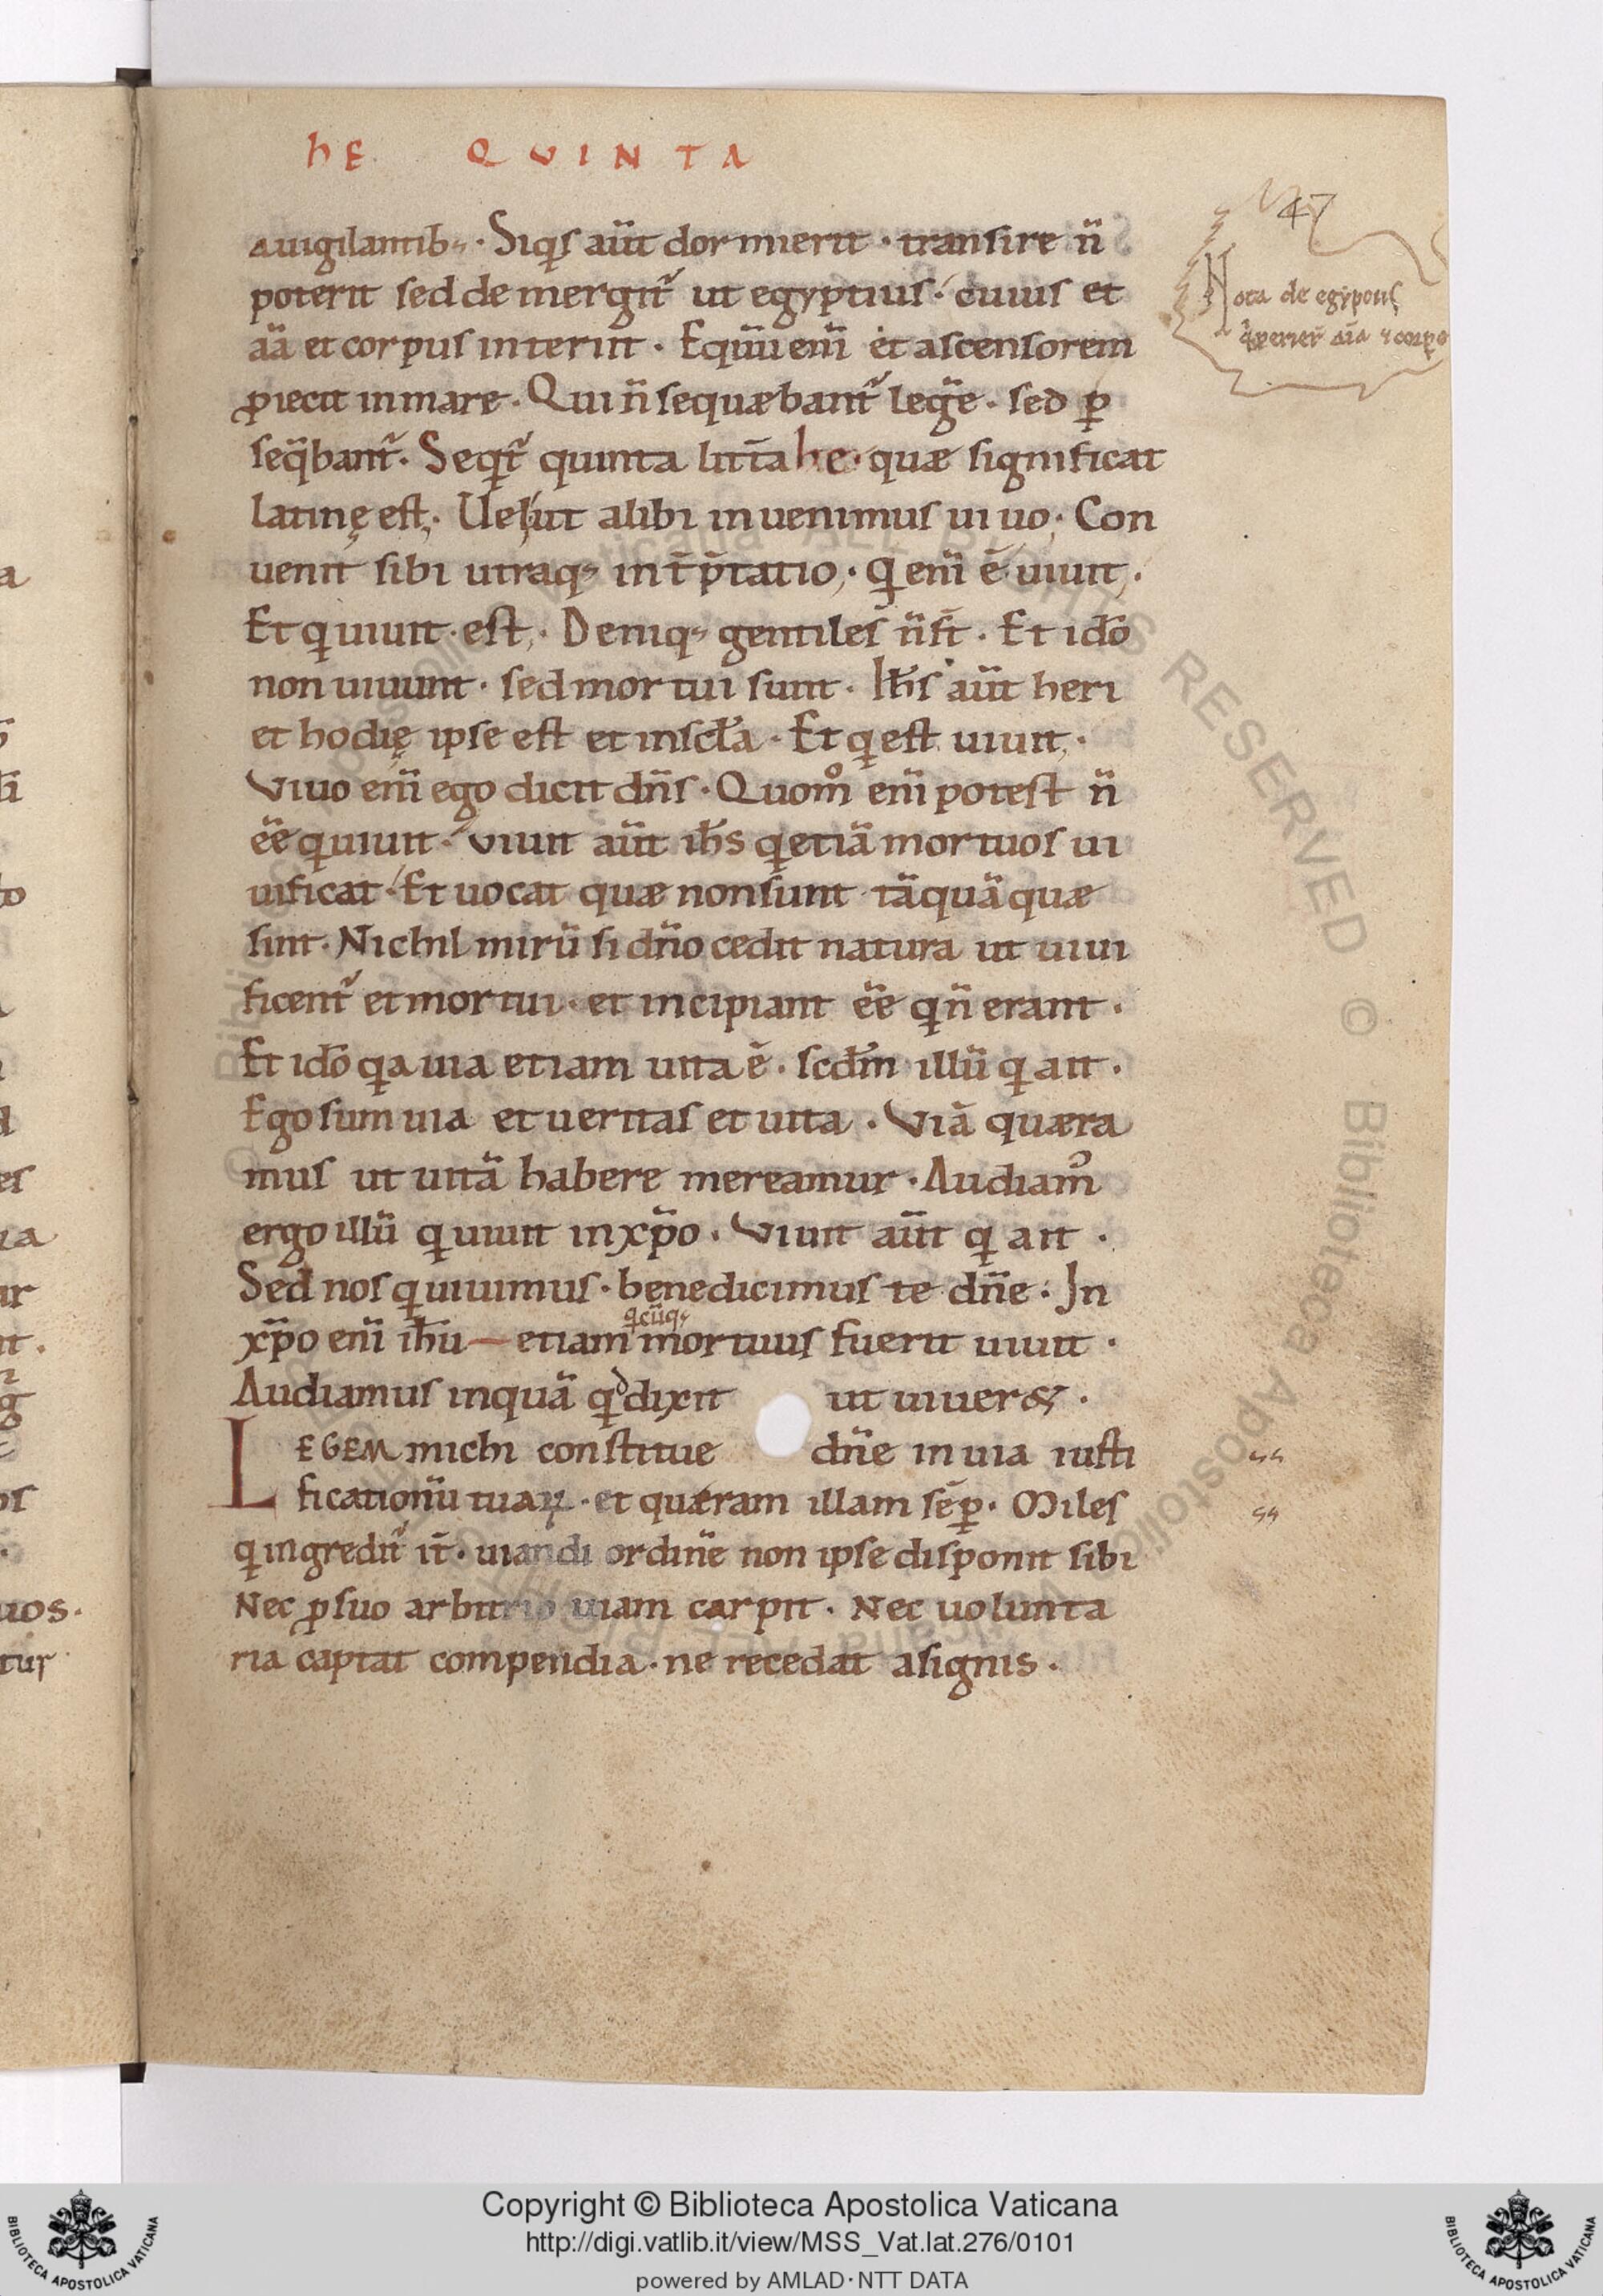 hE QUINTA
47
auigilantib; · Siqs aūt dormierit · transire n̄
poterit sed demergit᷑ ut egyptius · cuius et
Nota de egyptiis
aīa et corpus interiit · Equū eni̅ et ascensorem
ꝓiecit inmare · Qui n̄ sequæbant᷑ legē · sed ꝑ
seq̄bant᷑ · Seqt᷑ quinta litt̄a he · quæ significat
latinę est; · Uelut alibi inuenimus uiuo; · Con
uenit sibi utraq; int̄p̄tatio; · Q eni̅ ē uiuit; ·
Et q uiuit · est; · Deniq; gentiles n̄ st̄ · Et ido̅
non uiuunt · sed mortui sunt · Ih̅s aūt heri
et hodię ipse est et insc̅la · Et q est uiuit; ·
Viuo eni̅ ego dicit dn̅s · Quom̊ eni̅ potest n̄
ēē q uiuit · viuit aūt ih̅s q etiā mortuos ui
uificat · Et uocat quæ nonsunt tāquā quæ
sint · Nichil mirū si dn̅o cedit natura ut uiui
ficent᷑ et mortui · et incipiant ēē q n̄ erant ·
Et ido̅ qa uia etiam uita ē · scd̅m illū q ait ·
Ego sum uia et ueritas et uita · Viā quæra
mus ut uitā habere mereamur · Audiam᷒
ergo illū q uiuit in xp̅o · Viuit aūt q ait ·
Sed nos q uiuimus · benedicimus te dn̅e : In
qcūq;
xp̅o eni̅ ih̅u — etiam mortuus fuerit uiuit ·
Audiamus inquā qd dixit ut uiuer& ·
LEGEM michi constitue dn̅e in uia iusti
ficationū tuaꝝ · et quæram illam sēꝑ · Miles
q ingredit᷑ it̄ · uiandi ordinē non ipse disponit sibi
Nec ꝓ suo arbitrio uiam carpit · Nec uolunta
ria captat compendia · ne recedat asignis ·
© Biblioteca Apostolica Vaticana ALL RIGHTS RESERVED
Copyright © Biblioteca Apostolica Vaticana
http://digi.vatlib.it/view/MSS_Vat.lat.276/0101
powered by AMLAD·NTT DATA
BIBLIOTECA APOSTOLICA VATICANA
BIBLIOTECA APOSTOLICA VATICANA